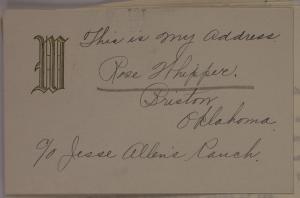 W
This is my Address
Rose Whipper.
Bristow
Oklahoma.
c/o Jesse Allen's Ranch.